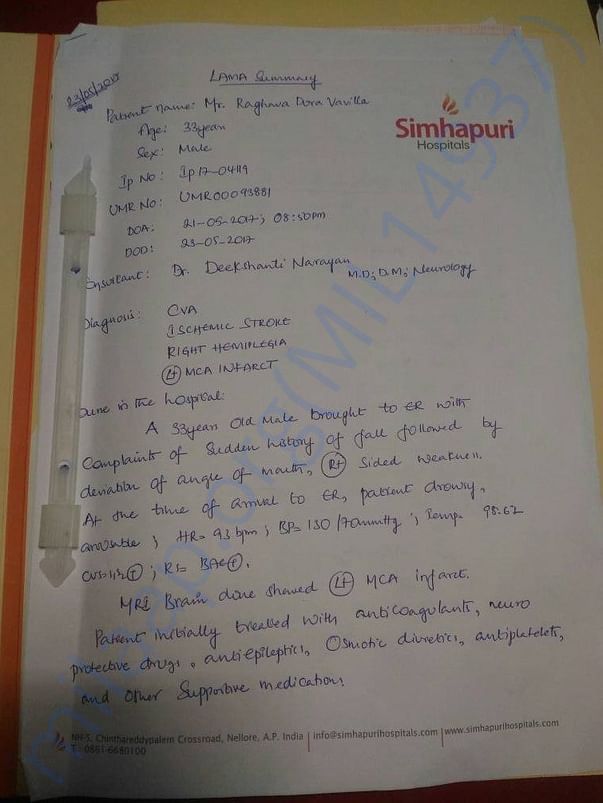 23/05/2017
LAMA Summary
Patient name: Mr. Raghava Dora Vavilla
Simhapuri
Hospitals
Age: 33year
Sex: Male
Ip No: Ip17-04119
UMR No: UMR00093881
DOA: 21-05-2017; 08:50pm
DOD: 23-05-2017
Consultant: Dr. Deekshanti Narayan M.D; D.M; Neurology
Diagnosis: CVA
ISCHEMIC STROKE
RIGHT HEMIPLEGIA
Lt MCA INFARCT
in the hospital:
A 33year old Male brought to ER with
Complaints of Sudden history of fall followed by
deviation of angle of mouth, Rt Sided weakness.
At the time of arrival to ER, patient drowsy,
arousable; HR= 93 bpm; BP= 130/70mmHg; Temp- 98.6
CVS=S1S2+; RS= BAE+.
MRI Brain done showed Lt MCA infarct.
Patient initially treated with anticoagulants, neuro
protective drugs, antiepileptics, Osmotic diuretics, antiplatelets,
and other Supportive medications.
NH-5, Chinthareddypalem Crossroad, Nellore, A.P. India | info@simhapurihospitals.com | www.simhapurihospitals.com
T : 0861-6680100
milaap.org(MIL14937)